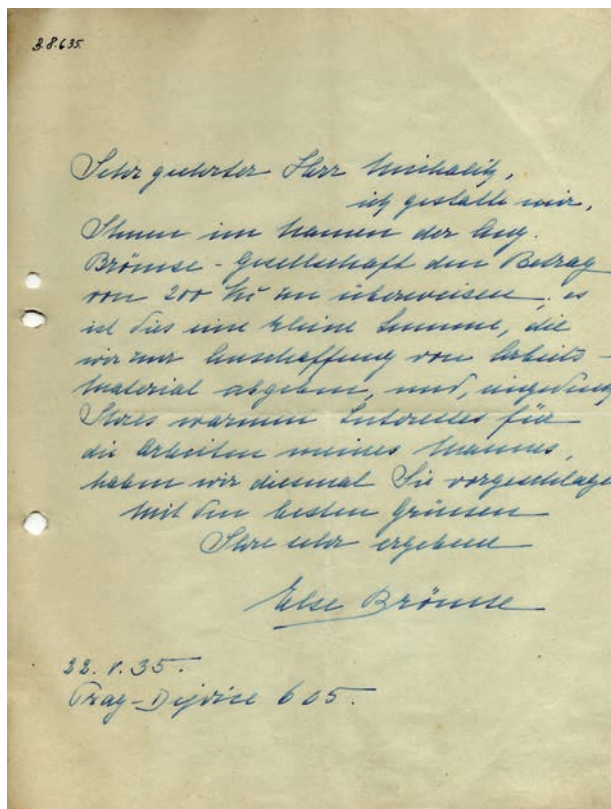 3.8.635.
Sehr geehrter Herr Michalitz,
ich gestatte mir,
Ihnen im Namen der Aug.
Brömse-Gesellschaft den Betrag
von 200 Kč zu überweisen, es
ist dies eine kleine Summe, die
wir zur Anschaffung von Arbeits-
material abgeben, und, eingedenk
Ihres warmen Interesses für
die Arbeiten meines Mannes,
haben wir diesmal Sie vorgeschlagen
Mit den besten Grüssen
Ihre sehr ergebene
Else Brömse
22.V.35.
Prag-Dejvice 605.